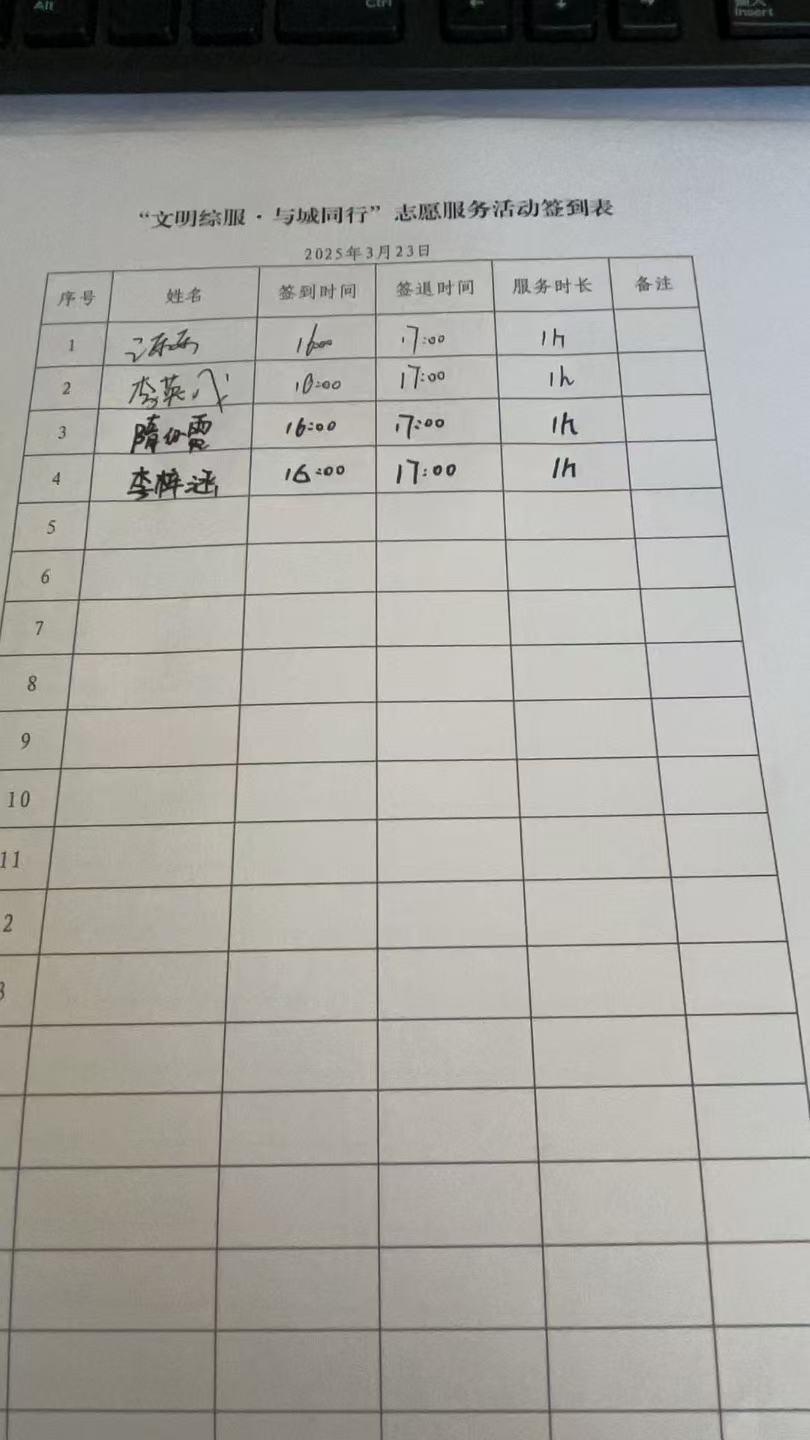 Alt
Ctrl
←
↓
→
插入
Insert
“文明综服·与城同行”志愿服务活动签到表
2025年3月23日
序号 姓名 签到时间 签退时间 服务时长 备注
1 16:00 17:00 1h
2 李英 16:00 17:00 1h
3 隋 霞 16:00 17:00 1h
4 李梓涵 16:00 17:00 1h
5
6
7
8
9
10
11
2
3